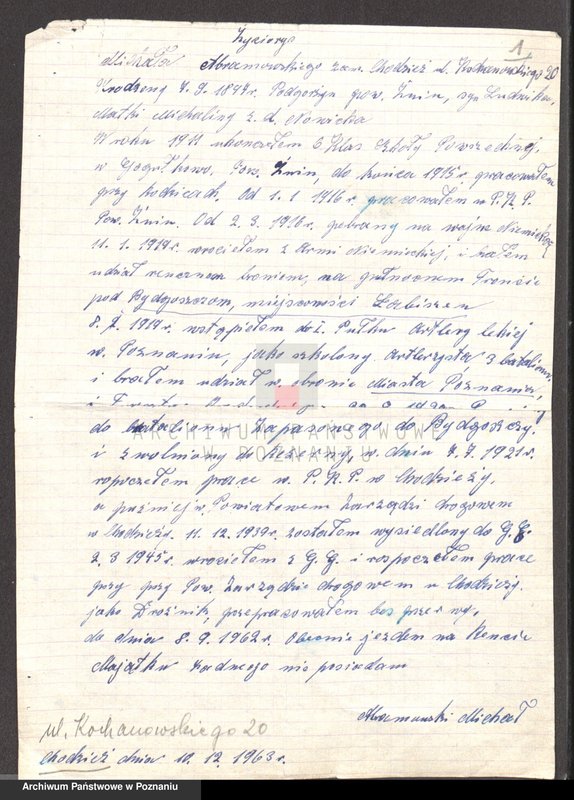 Życiorys
1
Michała Abramowskiego zam. Chodzież ul. Kochanowskiego 20
Urodzony 7. 9. 1897r. Podgorzyn pow. Żnin, syn Ludwika,
Matki Michaliny z. d. Nowicka
W roku 1911 ukonczałem 6 klas szkoły Powszednej,
w Gogułkowo. Pow. Żnin, do końca 1915r. pracowałem
przy Rodzicach. Od 1. 1 1916r. pracowałem w P.K.P.
Pow. Żnin. Od 2. 3. 1916r. pobrany na wojnę Niemiecką
11. 1. 1919r. wrociełem z Armi Niemieckiej, i brałem
udział broniem, na Froncie
pod Bydgoszczom, miejscowości Łabiszen
8. 2. 1919r. wstąpiołem do 1. Pułku Artlery lekiej
w. Poznaniu, jako szkolony Artlerzysta, 3 batalionu,
i brałem udział w. obronie Miasta Poznania,
do batalionu Zapasowego do Bydgoszczy,
i zwolniony do Rezerwy, w. dniu 7. 7. 1921r.
ropoczełem prace w. P. K. P. w Chodzieży,
a pużniej w. Powiatowem Zarządzi drogowem
w Chodzieży. 11. 12. 1939r. zostałem wysiedlony do G. G.
2. 3 1945r. wrociełem z G. G. i rospoczełem prace
przy przy Pow. Zarządzie drogowem w Chodzieży.
jako Drożnik, przepracowałem bes przerwy,
do dniu 8. 9. 1962r. Obecnie jezdem na Rencie
Majątku żadnego nie posiadam
Abramowski Michał
ul. Kochanowskiego 20
Chodzież dniu 10. 12. 1963r.
ARCHIWUM PAŃSTWOWE
W POZNANIU
Archiwum Państwowe w Poznaniu